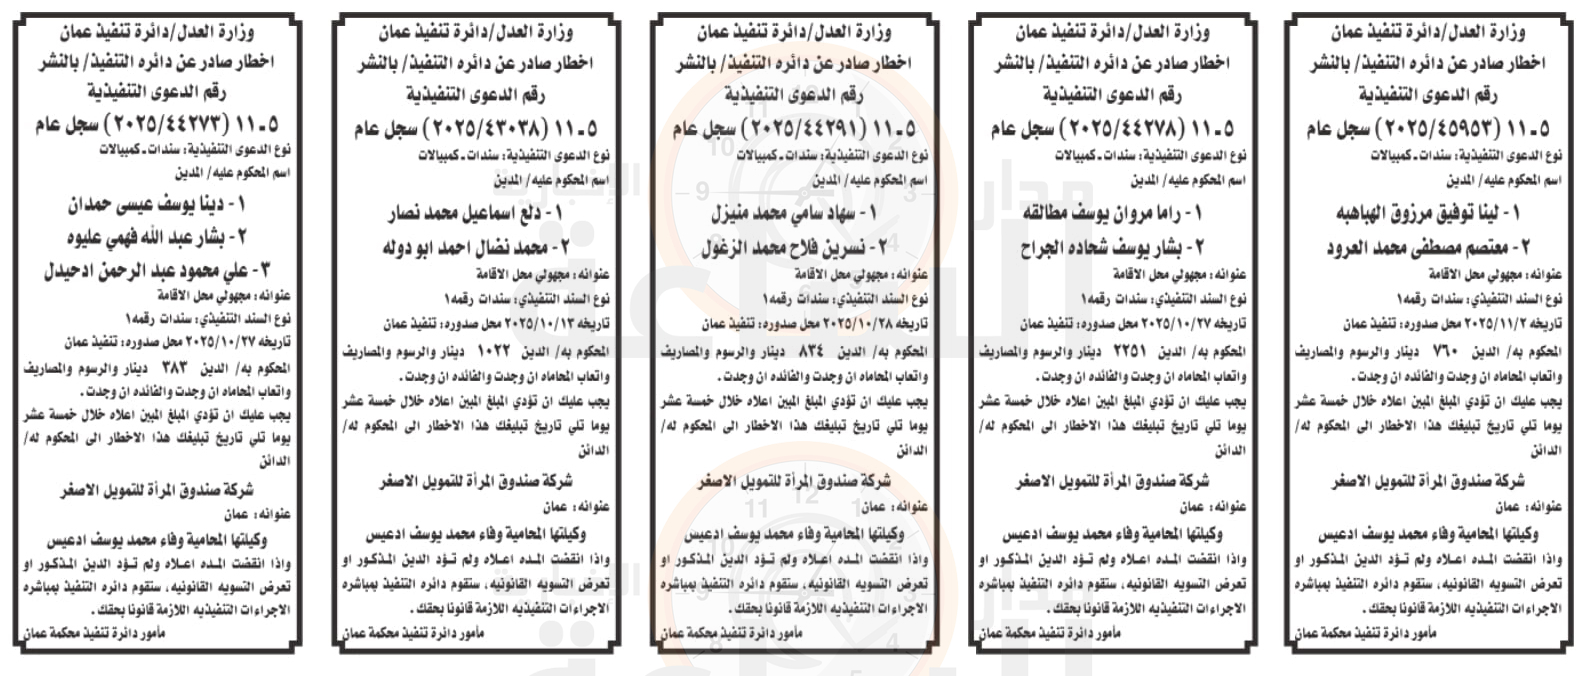 وزارة العدل/دائرة تنفيذ عمان
اخطار صادر عن دائره التنفيذ/ بالنشر
رقم الدعوى التنفيذية
٥ـ١١ (٢٠٢٥/٤٥٩٥٣) سجل عام
نوع الدعوى التنفيذية: سندات ـ كمبيالات
اسم المحكوم عليه/ المدين
١- لينا توفيق مرزوق الهباهبه
٢- معتصم مصطفى محمد العرود
عنوانه: مجهولي محل الاقامة
نوع السند التنفيذي: سندات رقمه١
تاريخه ٢٠٢٥/١١/٢ محل صدوره: تنفيذ عمان
المحكوم به/ الدين ٧٦٠ دينار والرسوم والمصاريف
واتعاب المحاماه ان وجدت والفائده ان وجدت.
يجب عليك ان تؤدي المبلغ المبين اعلاه خلال خمسة عشر
يوما تلي تاريخ تبليغك هذا الاخطار الى المحكوم له/
الدائن
شركة صندوق المرأة للتمويل الاصغر
عنوانه: عمان
وكيلتها المحامية وفاء محمد يوسف ادعيس
واذا انقضت المده اعلاه ولم تؤد الدين المذكور او
تعرض التسويه القانونيه، ستقوم دائره التنفيذ بمباشره
الاجراءات التنفيذيه اللازمة قانونا بحقك.
مأمور دائرة تنفيذ محكمة عمان
وزارة العدل/دائرة تنفيذ عمان
اخطار صادر عن دائره التنفيذ/ بالنشر
رقم الدعوى التنفيذية
٥ـ١١ (٢٠٢٥/٤٤٢٧٨) سجل عام
نوع الدعوى التنفيذية: سندات ـ كمبيالات
اسم المحكوم عليه/ المدين
١- راما مروان يوسف مطالقه
٢- بشار يوسف شحاده الجراح
عنوانه: مجهولي محل الاقامة
نوع السند التنفيذي: سندات رقمه١
تاريخه ٢٠٢٥/١٠/٢٧ محل صدوره: تنفيذ عمان
المحكوم به/ الدين ٢٢٥١ دينار والرسوم والمصاريف
واتعاب المحاماه ان وجدت والفائده ان وجدت.
يجب عليك ان تؤدي المبلغ المبين اعلاه خلال خمسة عشر
يوما تلي تاريخ تبليغك هذا الاخطار الى المحكوم له/
الدائن
شركة صندوق المرأة للتمويل الاصغر
عنوانه: عمان
وكيلتها المحامية وفاء محمد يوسف ادعيس
واذا انقضت المده اعلاه ولم تؤد الدين المذكور او
تعرض التسويه القانونيه، ستقوم دائره التنفيذ بمباشره
الاجراءات التنفيذيه اللازمة قانونا بحقك.
مأمور دائرة تنفيذ محكمة عمان
وزارة العدل/دائرة تنفيذ عمان
اخطار صادر عن دائره التنفيذ/ بالنشر
رقم الدعوى التنفيذية
٥ـ١١ (٢٠٢٥/٤٤٢٩١) سجل عام
نوع الدعوى التنفيذية: سندات ـ كمبيالات
اسم المحكوم عليه/ المدين
١- سهاد سامي محمد منيزل
٢- نسرين فلاح محمد الزغول
عنوانه: مجهولي محل الاقامة
نوع السند التنفيذي: سندات رقمه١
تاريخه ٢٠٢٥/١٠/٢٨ محل صدوره: تنفيذ عمان
المحكوم به/ الدين ٨٣٤ دينار والرسوم والمصاريف
واتعاب المحاماه ان وجدت والفائده ان وجدت.
يجب عليك ان تؤدي المبلغ المبين اعلاه خلال خمسة عشر
يوما تلي تاريخ تبليغك هذا الاخطار الى المحكوم له/
الدائن
شركة صندوق المرأة للتمويل الاصغر
عنوانه: عمان
وكيلتها المحامية وفاء محمد يوسف ادعيس
واذا انقضت المده اعلاه ولم تؤد الدين المذكور او
تعرض التسويه القانونيه، ستقوم دائره التنفيذ بمباشره
الاجراءات التنفيذيه اللازمة قانونا بحقك.
مأمور دائرة تنفيذ محكمة عمان
وزارة العدل/دائرة تنفيذ عمان
اخطار صادر عن دائره التنفيذ/ بالنشر
رقم الدعوى التنفيذية
٥ـ١١ (٢٠٢٥/٤٣٠٣٨) سجل عام
نوع الدعوى التنفيذية: سندات ـ كمبيالات
اسم المحكوم عليه/ المدين
١- دلع اسماعيل محمد نصار
٢- محمد نضال احمد ابو دوله
عنوانه: مجهولي محل الاقامة
نوع السند التنفيذي: سندات رقمه١
تاريخه ٢٠٢٥/١٠/١٣ محل صدوره: تنفيذ عمان
المحكوم به/ الدين ١٠٢٢ دينار والرسوم والمصاريف
واتعاب المحاماه ان وجدت والفائده ان وجدت.
يجب عليك ان تؤدي المبلغ المبين اعلاه خلال خمسة عشر
يوما تلي تاريخ تبليغك هذا الاخطار الى المحكوم له/
الدائن
شركة صندوق المرأة للتمويل الاصغر
عنوانه: عمان
وكيلتها المحامية وفاء محمد يوسف ادعيس
واذا انقضت المده اعلاه ولم تؤد الدين المذكور او
تعرض التسويه القانونيه، ستقوم دائره التنفيذ بمباشره
الاجراءات التنفيذيه اللازمة قانونا بحقك.
مأمور دائرة تنفيذ محكمة عمان
وزارة العدل/دائرة تنفيذ عمان
اخطار صادر عن دائره التنفيذ/ بالنشر
رقم الدعوى التنفيذية
٥ـ١١ (٢٠٢٥/٤٤٢٧٣) سجل عام
نوع الدعوى التنفيذية: سندات ـ كمبيالات
اسم المحكوم عليه/ المدين
١- دينا يوسف عيسى حمدان
٢- بشار عبد الله فهمي عليوه
٣- علي محمود عبد الرحمن ادحيدل
عنوانه: مجهولي محل الاقامة
نوع السند التنفيذي: سندات رقمه١
تاريخه ٢٠٢٥/١٠/٢٧ محل صدوره: تنفيذ عمان
المحكوم به/ الدين ٣٨٣ دينار والرسوم والمصاريف
واتعاب المحاماه ان وجدت والفائده ان وجدت.
يجب عليك ان تؤدي المبلغ المبين اعلاه خلال خمسة عشر
يوما تلي تاريخ تبليغك هذا الاخطار الى المحكوم له/
الدائن
شركة صندوق المرأة للتمويل الاصغر
عنوانه: عمان
وكيلتها المحامية وفاء محمد يوسف ادعيس
واذا انقضت المده اعلاه ولم تؤد الدين المذكور او
تعرض التسويه القانونيه، ستقوم دائره التنفيذ بمباشره
الاجراءات التنفيذيه اللازمة قانونا بحقك.
مأمور دائرة تنفيذ محكمة عمان
مدار
الساعة
الإخبارية